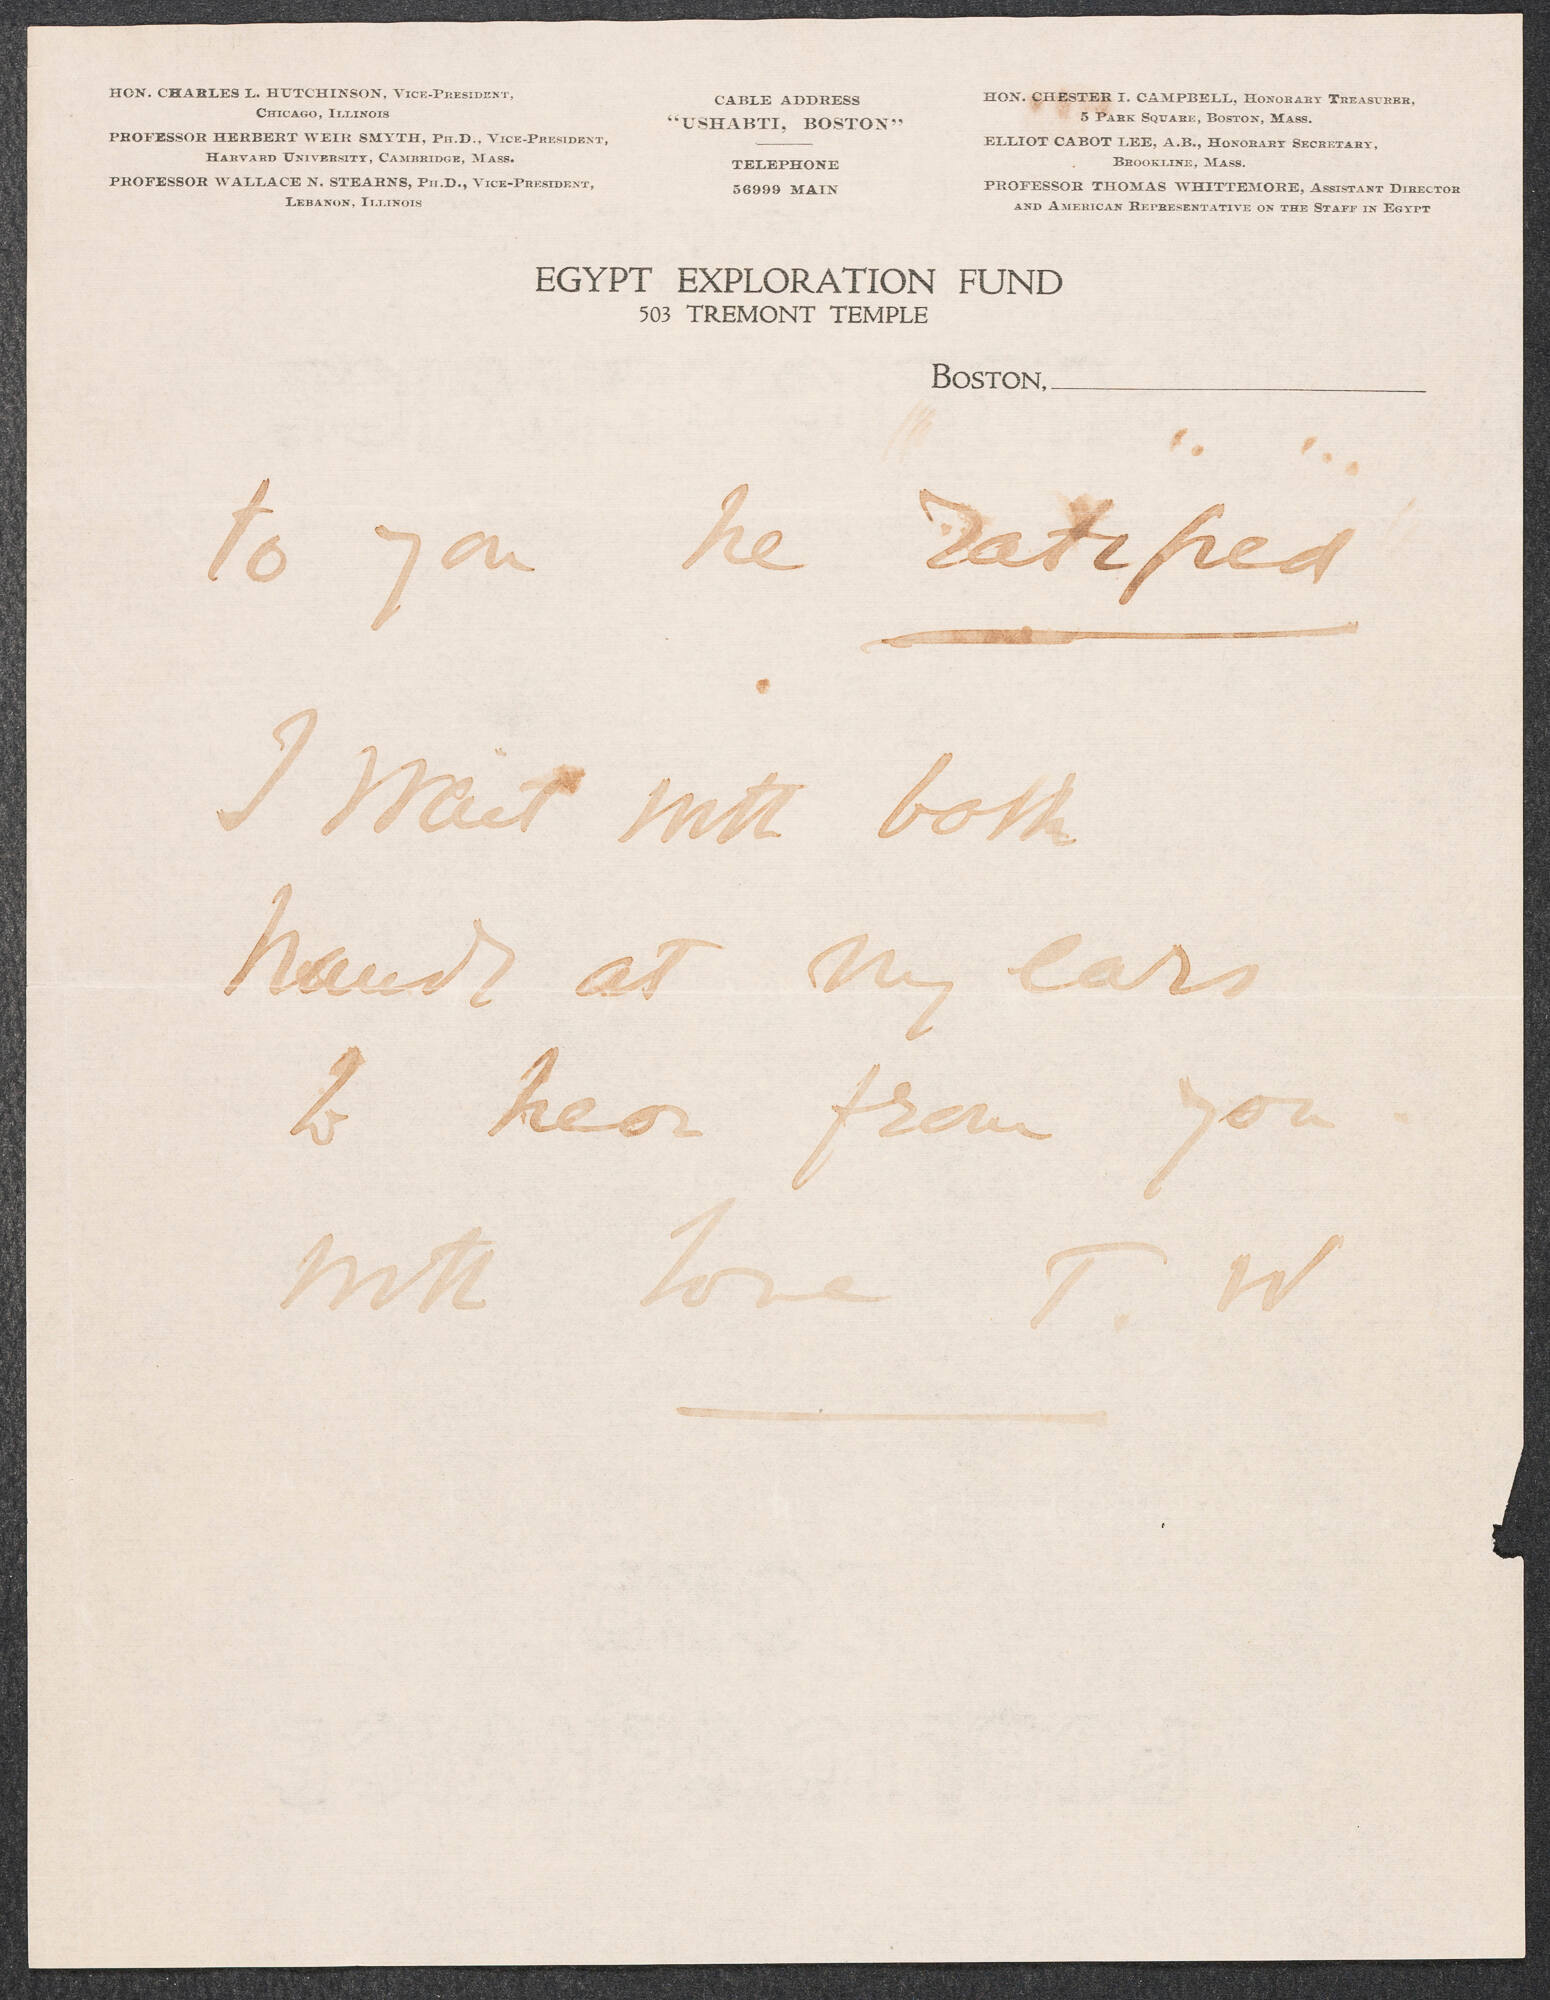 HON. CHARLES L. HUTCHINSON, VICE-PRESIDENT,
CHICAGO, ILLINOIS
PROFESSOR HERBERT WEIR SMYTH, PH.D., VICE-PRESIDENT,
HARVARD UNIVERSITY, CAMBRIDGE, MASS.
PROFESSOR WALLACE N. STEARNS, PH.D., VICE-PRESIDENT,
LEBANON, ILLINOIS
CABLE ADDRESS
"USHABTI, BOSTON"
TELEPHONE
56999 MAIN
HON. CHESTER I. CAMPBELL, HONORARY TREASURER,
5 PARK SQUARE, BOSTON, MASS.
ELLIOT CABOT LEE, A.B., HONORARY SECRETARY,
BROOKLINE, MASS.
PROFESSOR THOMAS WHITTEMORE, ASSISTANT DIRECTOR
AND AMERICAN REPRESENTATIVE ON THE STAFF IN EGYPT
EGYPT EXPLORATION FUND
503 TREMONT TEMPLE
BOSTON,
to you he ratified
I wait with both
hands at my ears
to hear from you.
with love T. W